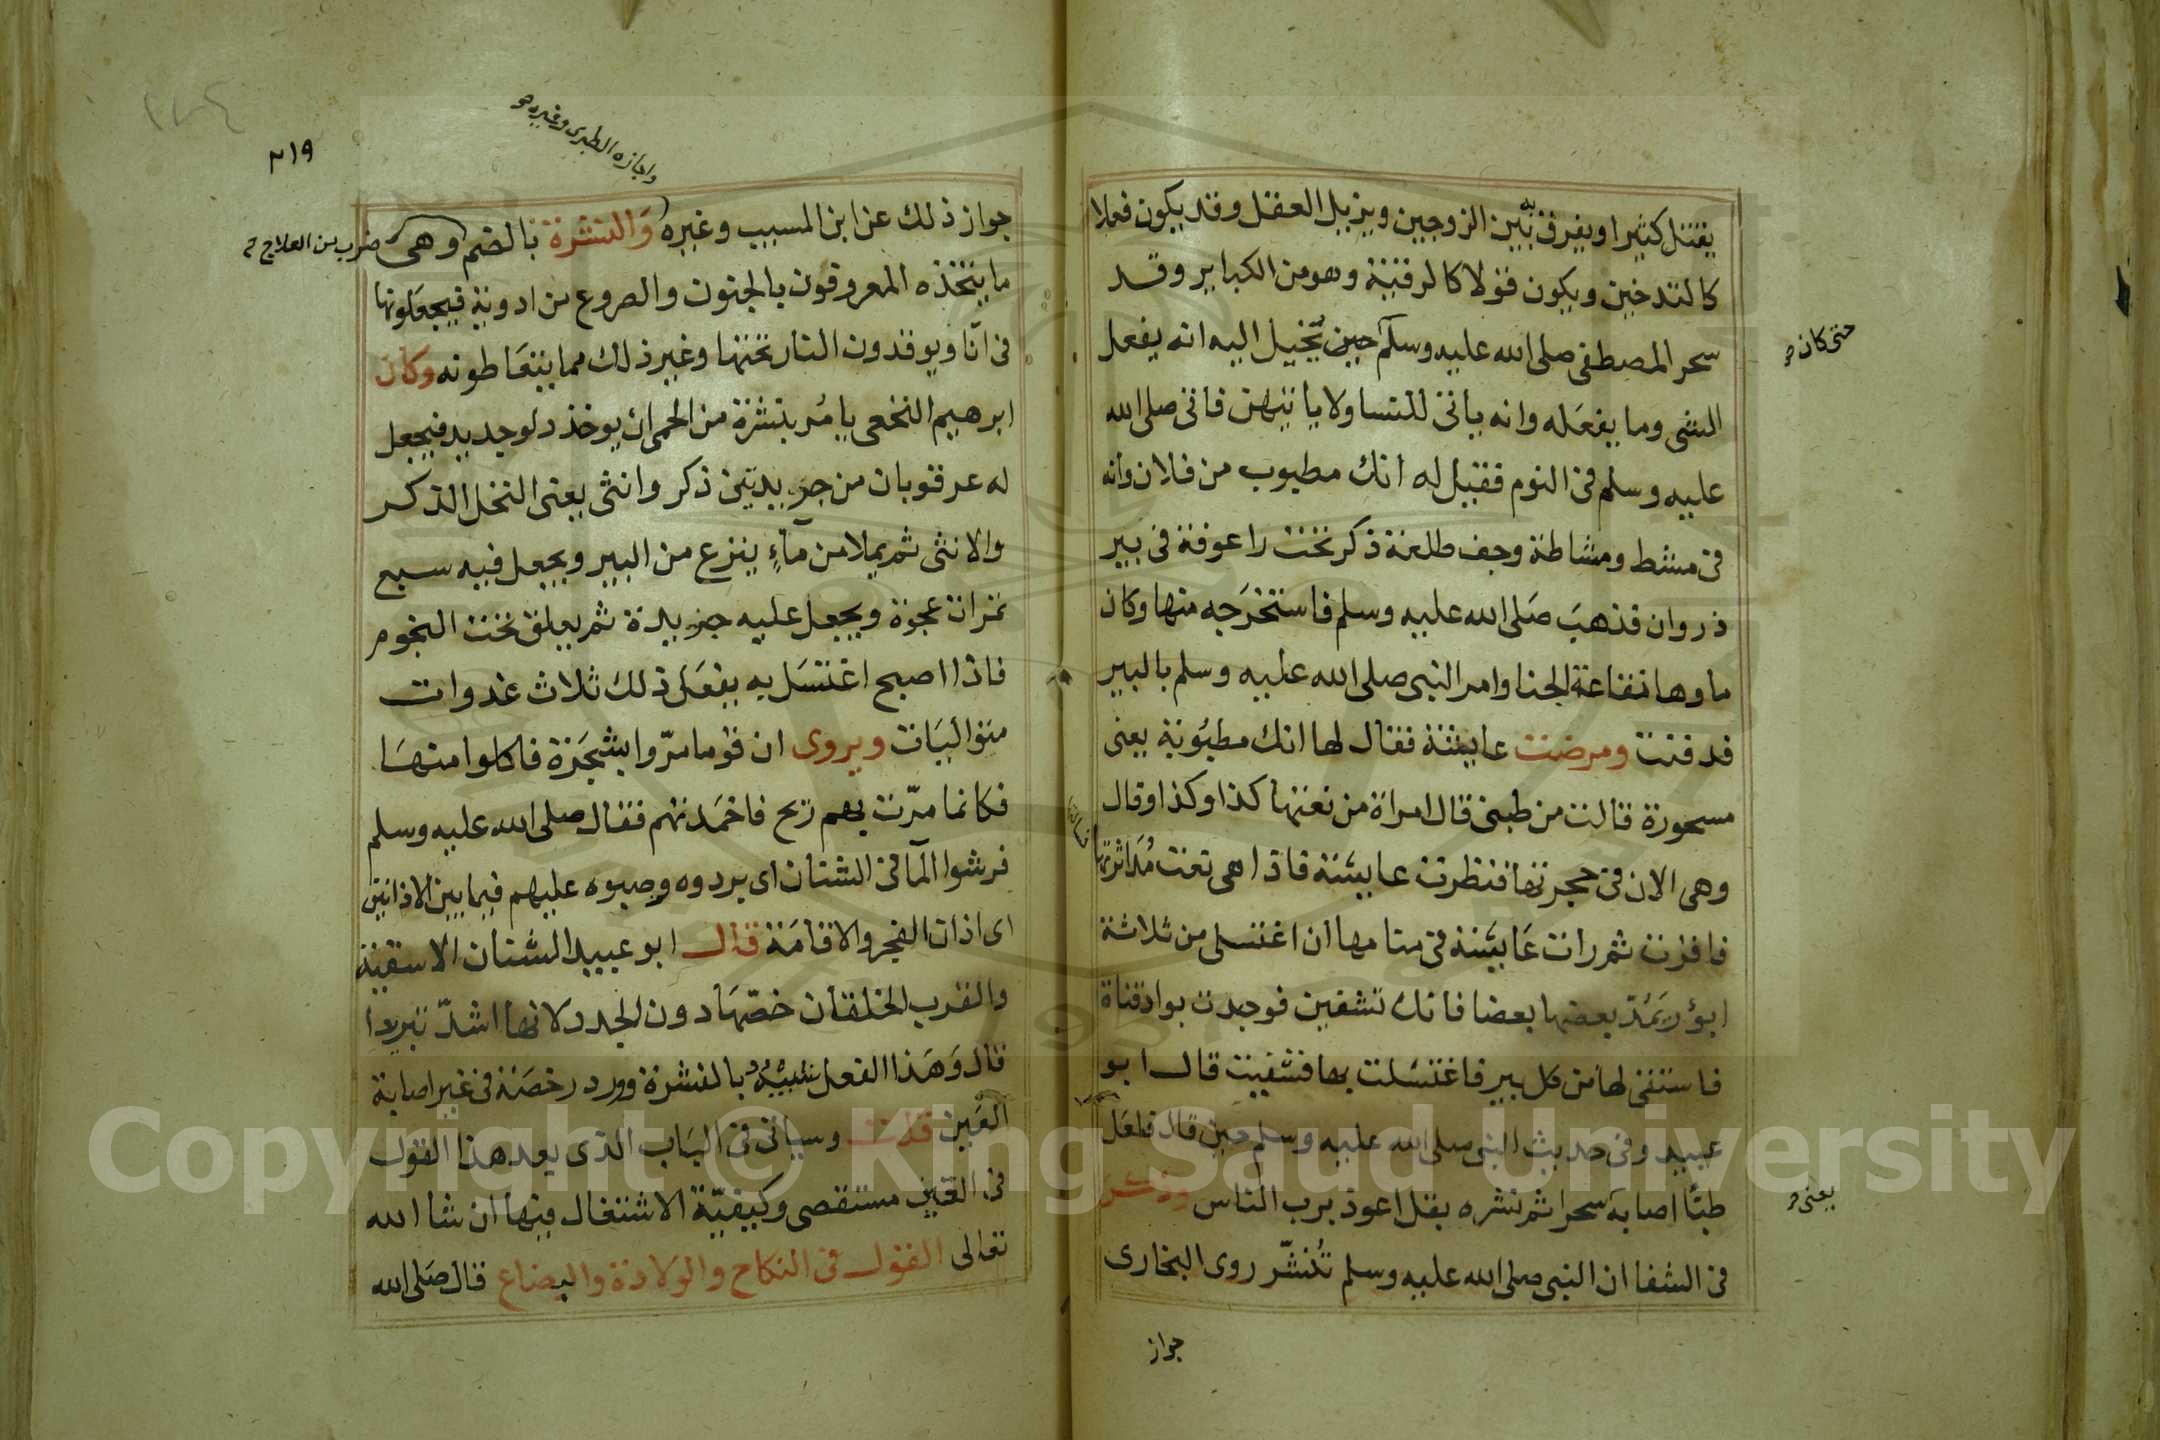 يقتل كثيرا ويفرق به بين الزوجين ويزيل العقل وقد يكون فعلا
كالتدخين ويكون قولا كالرقية وهو من الكباير وقد
سحر المصطفى صلى الله عليه وسلم حين يخيل اليه انه يفعل
حتى كان
الشى وما يفعله وانه ياتى للنسا ولا ياتيهن فاتى صلى الله
عليه وسلم فى النوم فقيل له انك مطبوب من فلان وانه
فى مشط ومشاطة وجف طلعة ذكر تحت راعوفة فى بير
ذروان فذهب صلى الله عليه وسلم فاستخرجه منها وكان
ماوها نقاعة الحنا وامر النبى صلى الله عليه وسلم بالبير
فدفنت ومرضت عايشة فقال لها انك مطبوبة يعنى
مسحورة قالت من طبنى قال امراة من نعتها كذا وكذا وقال
وهى الان فى حجرتها فنظرت عايشة فاذا هى تحت مدبرتها
فاقرت ثم رات عايشة فى منامها ان اغتسلى من ثلاثة
ابور يمد بعضها بعضا فانك تشفين فوجدت بوادقناة
فاستقى لها من كل بير فاغتسلت بها فشفيت قال ابو
عبيد وفى حديث النبى صلى الله عليه وسلم حين قال فلعل
طبا اصابه سحرا ثم نشره بقل اعوذ برب الناس وذكر
يعنى
فى الشفا ان النبى صلى الله عليه وسلم تنشر روى البخارى
جواز
٢١٩
واجازه الطبرى وغيره
جواز ذلك عن ابن المسيب وغيره والنشرة بالضم وهى ضرب من العلاج
ما يتخذه المعروفون بالجنون والصروع من ادوية فيجعلونها
فى انا ويوقدون النار تحتها وغير ذلك مما يتعاطونه وكان
ابرهيم النخعى يامر بنشرة من الحمى ان يوخذ دلو جديد فيجعل
له عرقوبان من جريدتين ذكر وانثى يعنى النخل الذكر
والانثى ثم يملا من مآء ينزع من البير ويجعل فيه سبع
تمرات عجوة ويجعل عليه جريدة ثم يعلق تحت النجوم
فاذا اصبح اغتسل به يفعل ذلك ثلاث غدوات
متواليات ويروى ان قوما مروا بشجرة فاكلوا منها
فكانما مرت بهم ريح فاخمدتهم فقال صلى الله عليه وسلم
فرشوا المآ فى الشنان اى بردوه وصبوه عليهم فيما بين الاذانين
اى اذان الفجر والاقامة قال ابو عبيد الشنان الاسقية
والقرب الخلقان خصها دون الجدد لانها اشد تبريدا
قال وهذا الفعل شبيه بالنشرة وورد رخصة فى غير اصابة
العين قلت وسياتى فى الباب الذى بعد هذا القول
فى العين مستقصى وكيفية الاشتغال فيها ان شا الله
تعالى القول فى النكاح والولادة والبضاع قال صلى الله
Copyright © King Saud University